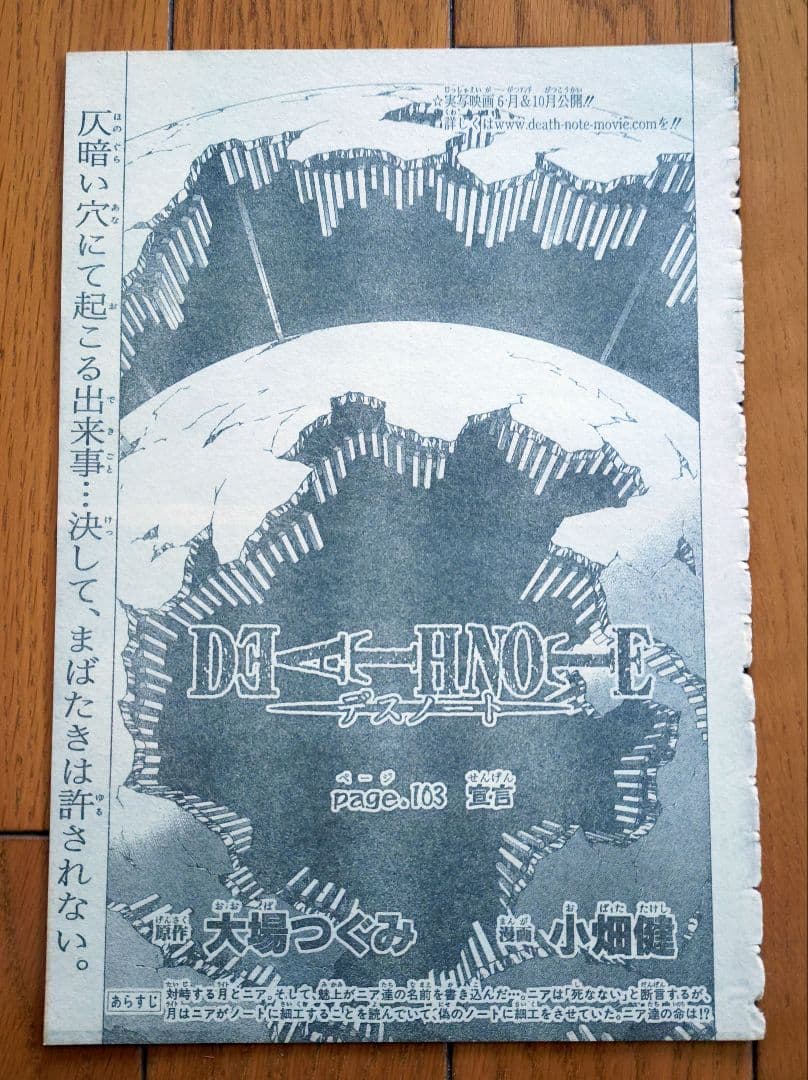 ☆実写映画6月&10月公開!!
詳しくはwww.death-note-movie.comを!!
仄暗い穴にて起こる出来事…決して、まばたきは許されない。
DEATH NOTE
デスノート
page.103 宣言
原作 大場つぐみ
漫画 小畑健
あらすじ
対峙する月とニア。そして、魅上がニア達の名前を書き込んだ…。ニアは「死なない」と断言するが、
月はニアがノートに細工することを読んでいて、偽のノートに細工をさせていた。ニア達の命は!?